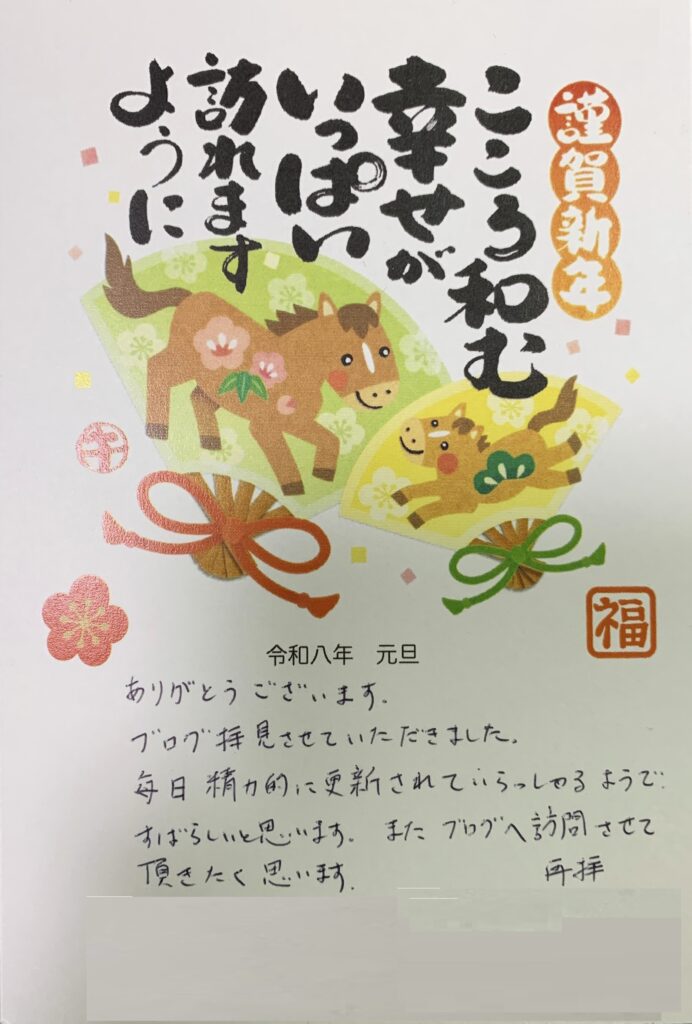 謹賀新年
こころ和む
幸せが
いっぱい
訪れます
ように
午
福
令和八年　元旦
ありがとうございます。
ブログ拝見させていただきました。
毎日精力的に更新されていらっしゃるようで
すばらしいと思います。またブログへ訪問させて
頂きたく思います。　再拝